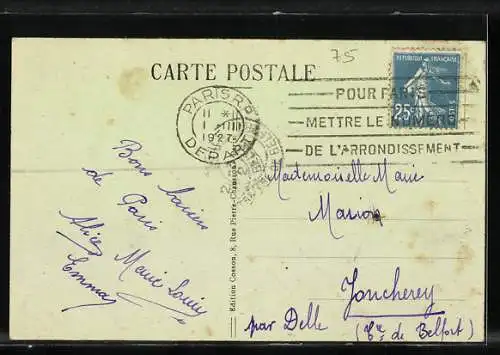 75
CARTE POSTALE
REPUBLIQUE FRANÇAISE
25c
PARIS R.P.
1927
DEPART
POUR PARIS
METTRE LE NUMERO
DE L'ARRONDISSEMENT
Bons baisers
de Paris
Marie Louise
Alice
Emma
Edition Cosson, 8, Rue Pierre-Chausson
Mademoiselle Marie
Marion
Joncherey
par Delle (Tre de Belfort)